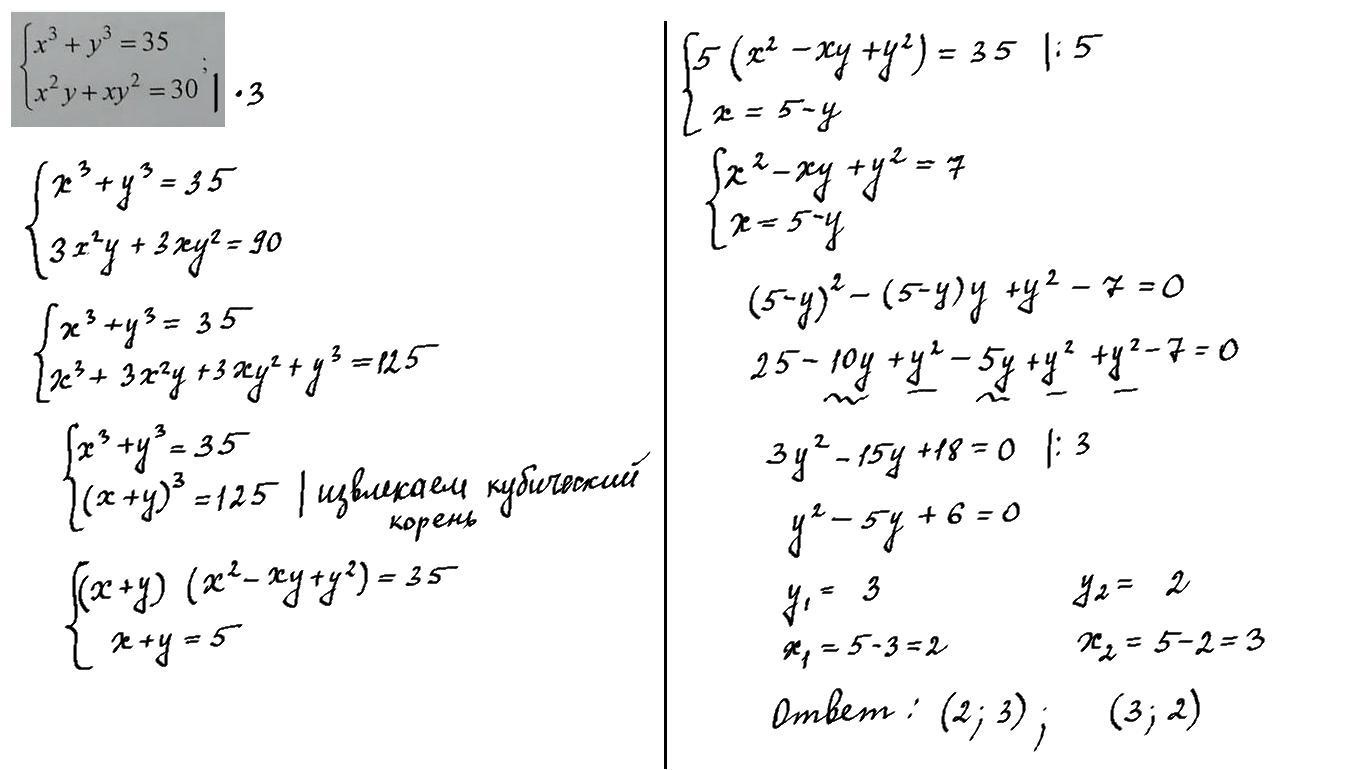 x³ + y³ = 35
x²y + xy² = 30 ; | · 3
x³ + y³ = 35
3x²y + 3xy² = 90
x³ + y³ = 35
x³ + 3x²y + 3xy² + y³ = 125
x³ + y³ = 35
(x + y)³ = 125 | извлекаем кубический
корень
(x + y) (x² - xy + y²) = 35
x + y = 5
5 (x² - xy + y²) = 35 | : 5
x = 5 - y
x² - xy + y² = 7
x = 5 - y
(5 - y)² - (5 - y) y + y² - 7 = 0
25 - 10y + y² - 5y + y² + y² - 7 = 0
3y² - 15y + 18 = 0 | : 3
y² - 5y + 6 = 0
y₁ = 3 y₂ = 2
x₁ = 5 - 3 = 2 x₂ = 5 - 2 = 3
Ответ: (2; 3); (3; 2)